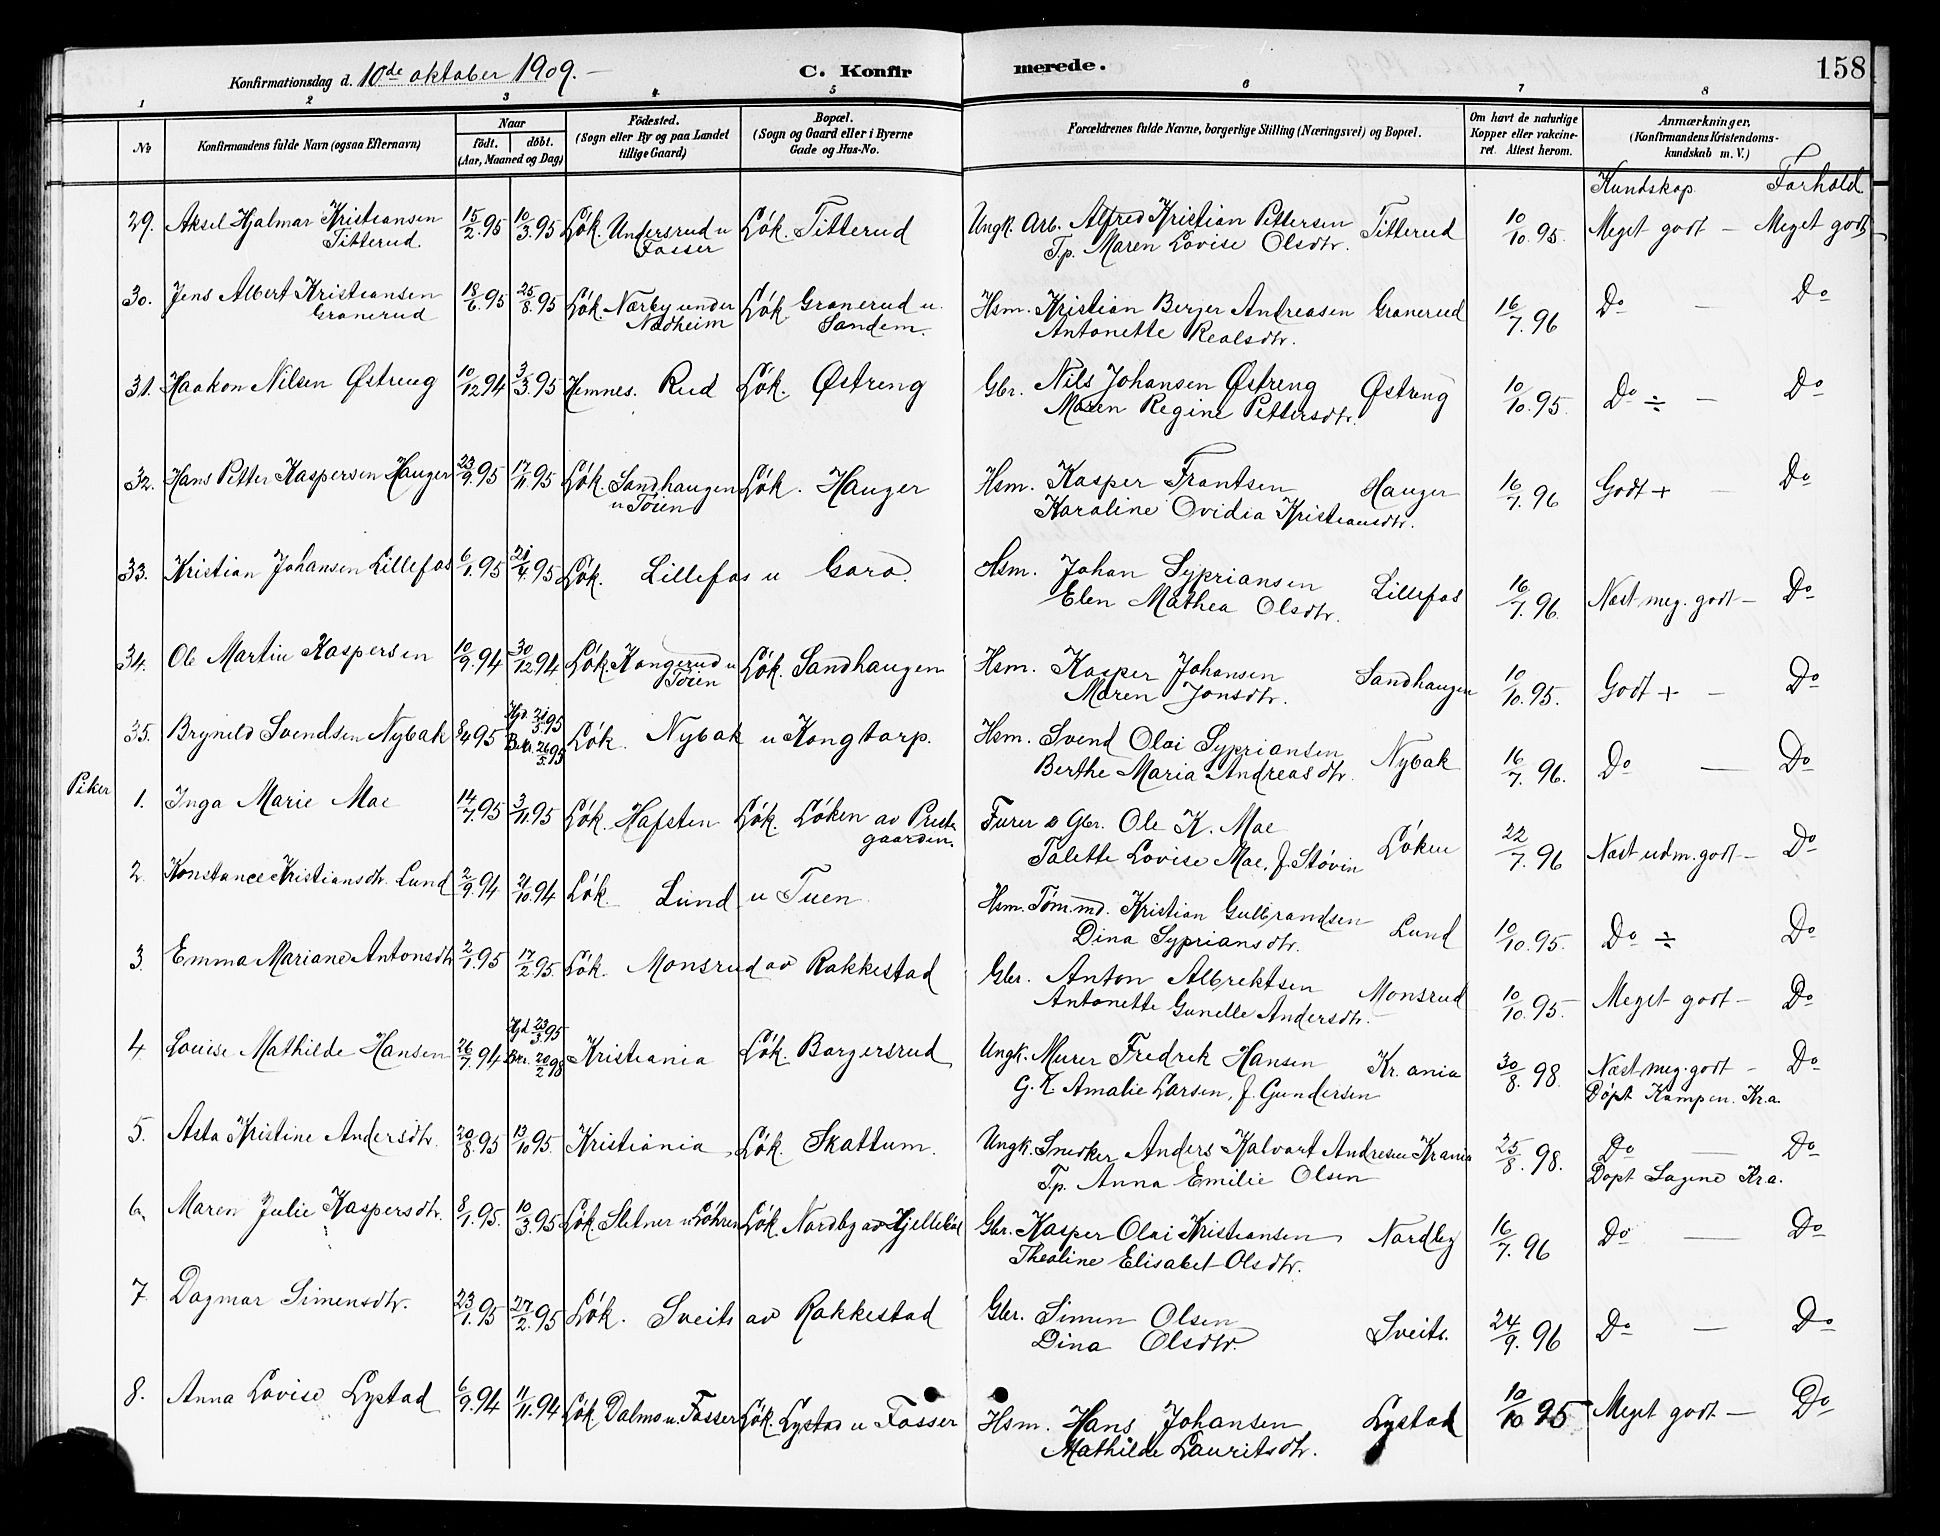 Konfirmationsdag d. 10de oktober 1909. –
C. Konfir merede.
158
1 2 3 4 5 6 7 8
No
Konfirmandens fulde Navn (ogsaa Efternavn)
Naar
født. døbt.
(Aar, Maaned og Dag)
Fødested.
(Sogn eller By og paa Landet
tillige Gaard)
Bopæl.
(Sogn og Gaard eller i Byerne
Gade og Hus-No.
Forældrenes fulde Navne, borgerlige Stilling (Næringsvei) og Bopæl.
Om havt de naturlige
Kopper eller vakcine-
ret. Attest herom.
Anmærkninger,
(Konfirmandens Kristendoms-
kundskab m. V.)
Kundskap Forhold
29. Aksel Hjalmar Kristiansen 15/2.95 10/3.95 Løk. Undersrud u Løk. Titterud Ungk. Arb. Alfred Kristian Pettersen Titterud 10/10.95. Meget godt – Meget godt
Titterud. Fosser T.p. Maren Lovise Olsdtr.
30. Jens Albert Kristiansen 18/6.95 25/8.95 Løk. Nærby under Løk. Granerud u. Hsm. Kristian Berger Andreasen Granerud 16/7.96 Do – Do
Granerud Nadheim Sandem. Antonette Realsdtr.
31. Haakon Nilsen Østreng 10/12 94 3/3.95 Hemnes. Rud Løk. Østreng Gbr. Nils Johansen Østreng Østreng 10/10.95. Do ÷ – Do
Maren Regine Pettersdtr.
32. Hans Petter Kaspersen Hauger 23/9.95 17/11.95 Løk. Sandhaugen Løk. Hauger Hsm. Kasper Frantsen Hauger 16/7.96 Godt + – Do
u Töien Karoline Ovidia Kristiansdtr.
33. Kristian Johansen Lillefos 6/1.95 21/4.95 Løk. Lillefos u Gara. Hsm. Johan Sypriansen Lillefos 16/7.96 Næst meg. godt – Do
Elen Mathea Olsdtr.
34. Ole Martin Kaspersen 10/9.94 30/12 94 Løk. Kongerud u Løk. Sandhaugen Hsm. Kasper Johansen Sandhaugen 10/10.95. Godt + – Do
Töien Maren Jonsdtr.
35. Brynild Svendsen Nybak 8/4 95 Hjd. 21/5.95 Løk. Nybak u Kongtorp. Hsm. Svend Olai Sypriansen Nybak 16/7.96. Do – Do
Bekr. 26/5.95 Berthe Maria Andreasdtr.
Piker
1. Inga Marie Moe 14/7.95 3/11.95 Løk. Hafsten Løk. Løken av Preste Furer & Gbr. Ole K. Moe Løken 22/7.96 Næst udm. godt – Do
gaarden. Talette Lovise Moe, f. Støvin
2. Konstance Kristiansdtr. Lund 2/9.94 21/10.94 Løk. Lund u Tuen Hsm. Tøm.md. Kristian Gulbrandsen Lund 10/10.95. Do ÷ Do
Dina Sypriansdtr.
3. Emma Mariane Antonsdtr 2/1.95 17/2.95. Løk. Monsrud av Rakkestad Gbr. Anton Albrektsen Monsrud 10/10.95. Meget godt – Do
Antonette Gunelle Andersdtr.
4 Louise Mathilde Hansen 26/7.94 Hjd 23/3.95 Kristiania Løk. Borgersrud Ungk. Murer Fredrik Hansen Kr.ania 30/8.98. Næst meg. godt – Do
Bkr. 20/2 98 G.K. Amalie Larsen, f. Gundersen Døpt Kampen. Kra.
5. Asta Kristine Andersdtr. 20/8.95 13/10 95. Kristiania Løk. Skattum. Ungk. Snekker Anders Halvart Andresen Krania 25/8.98. Do – Do
Tp. Anna Emilie Olsen Døpt Sagene Kra.
6. Maren Julie Kaspersdtr. 8/1.95. 10/3.95 Løk. Sletner u Løhren Løk. Nordby av Kjellebøl Gbr. Kasper Olai Kristiansen Nordby 16/7.96 Do – Do
Thealine Elisabet Olsdtr.
7. Dagmar Simensdtr. 23/1.95 27/2.95 Løk. Sveits av Rakkestad Gbr. Simen Olsen Sveits. 24/9.96 Do – Do
Dina Olsdtr.
8. Anna Lovise Lystad 6/9.94 11/11.94 Løk. Dalmo u. Fosser Løk. Lystad u Fosser Hsm. Hans Johansen Lystad 10/10 95 Meget godt – Do
Mathilde Lauritsdtr.